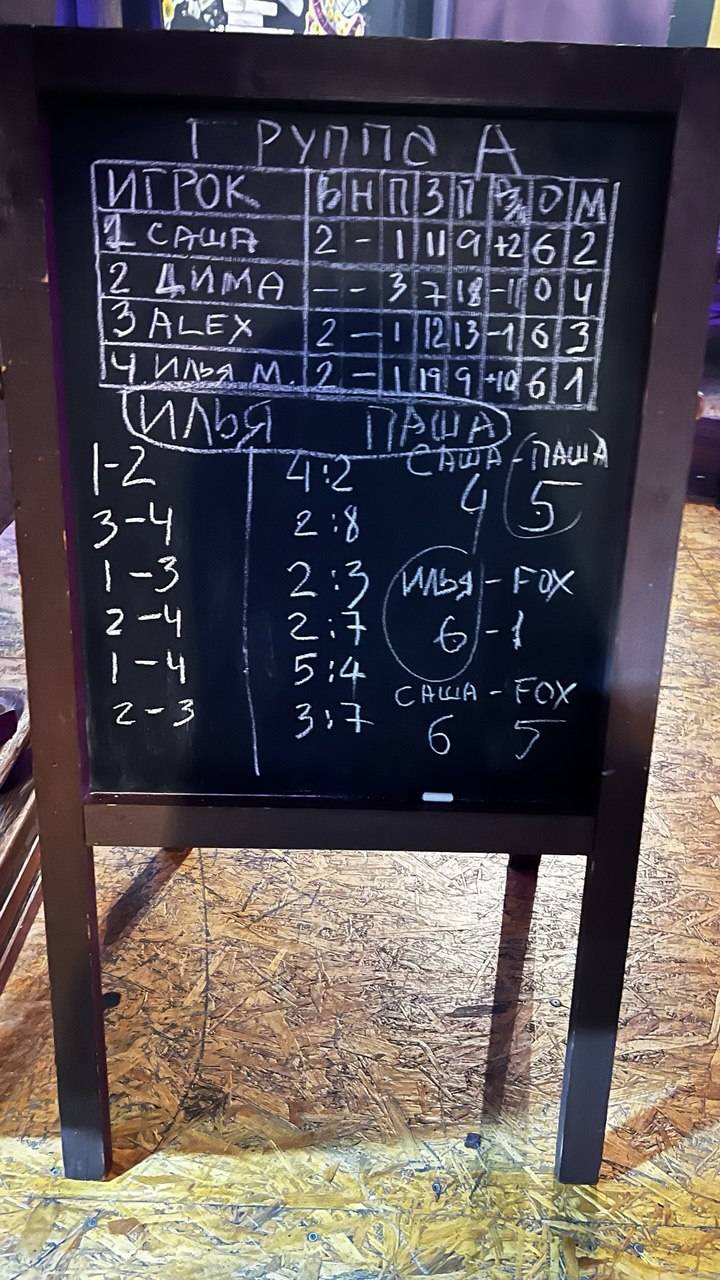 ГРУППА А
ИГРОК В Н П З П Р/З О М
1 САША 2 - 1 11 9 +2 6 2
2 ДИМА - - 3 7 18 -11 0 4
3 ALEX 2 - 1 12 13 -1 6 3
4 ИЛЬЯ М. 2 - 1 19 9 +10 6 1
ИЛЬЯ ПАША
1-2 4:2
3-4 2:8
1-3 2:3
2-4 2:7
1-4 5:4
2-3 3:7
САША - ПАША
4 5
ИЛЬЯ - FOX
6 - 1
САША - FOX
6 5